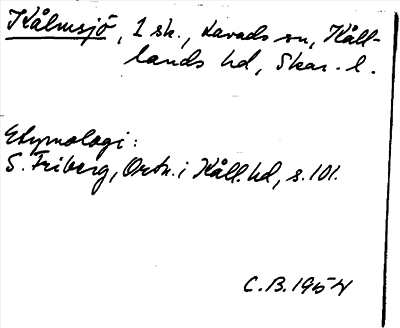 Kålmsjö, 1 sk., Lavads sn, Kåll-
lands hd, Skar. l.
Etymologi:
S. Friberg, Ortn. i Kåll. hd, s. 101.
C.B. 1954